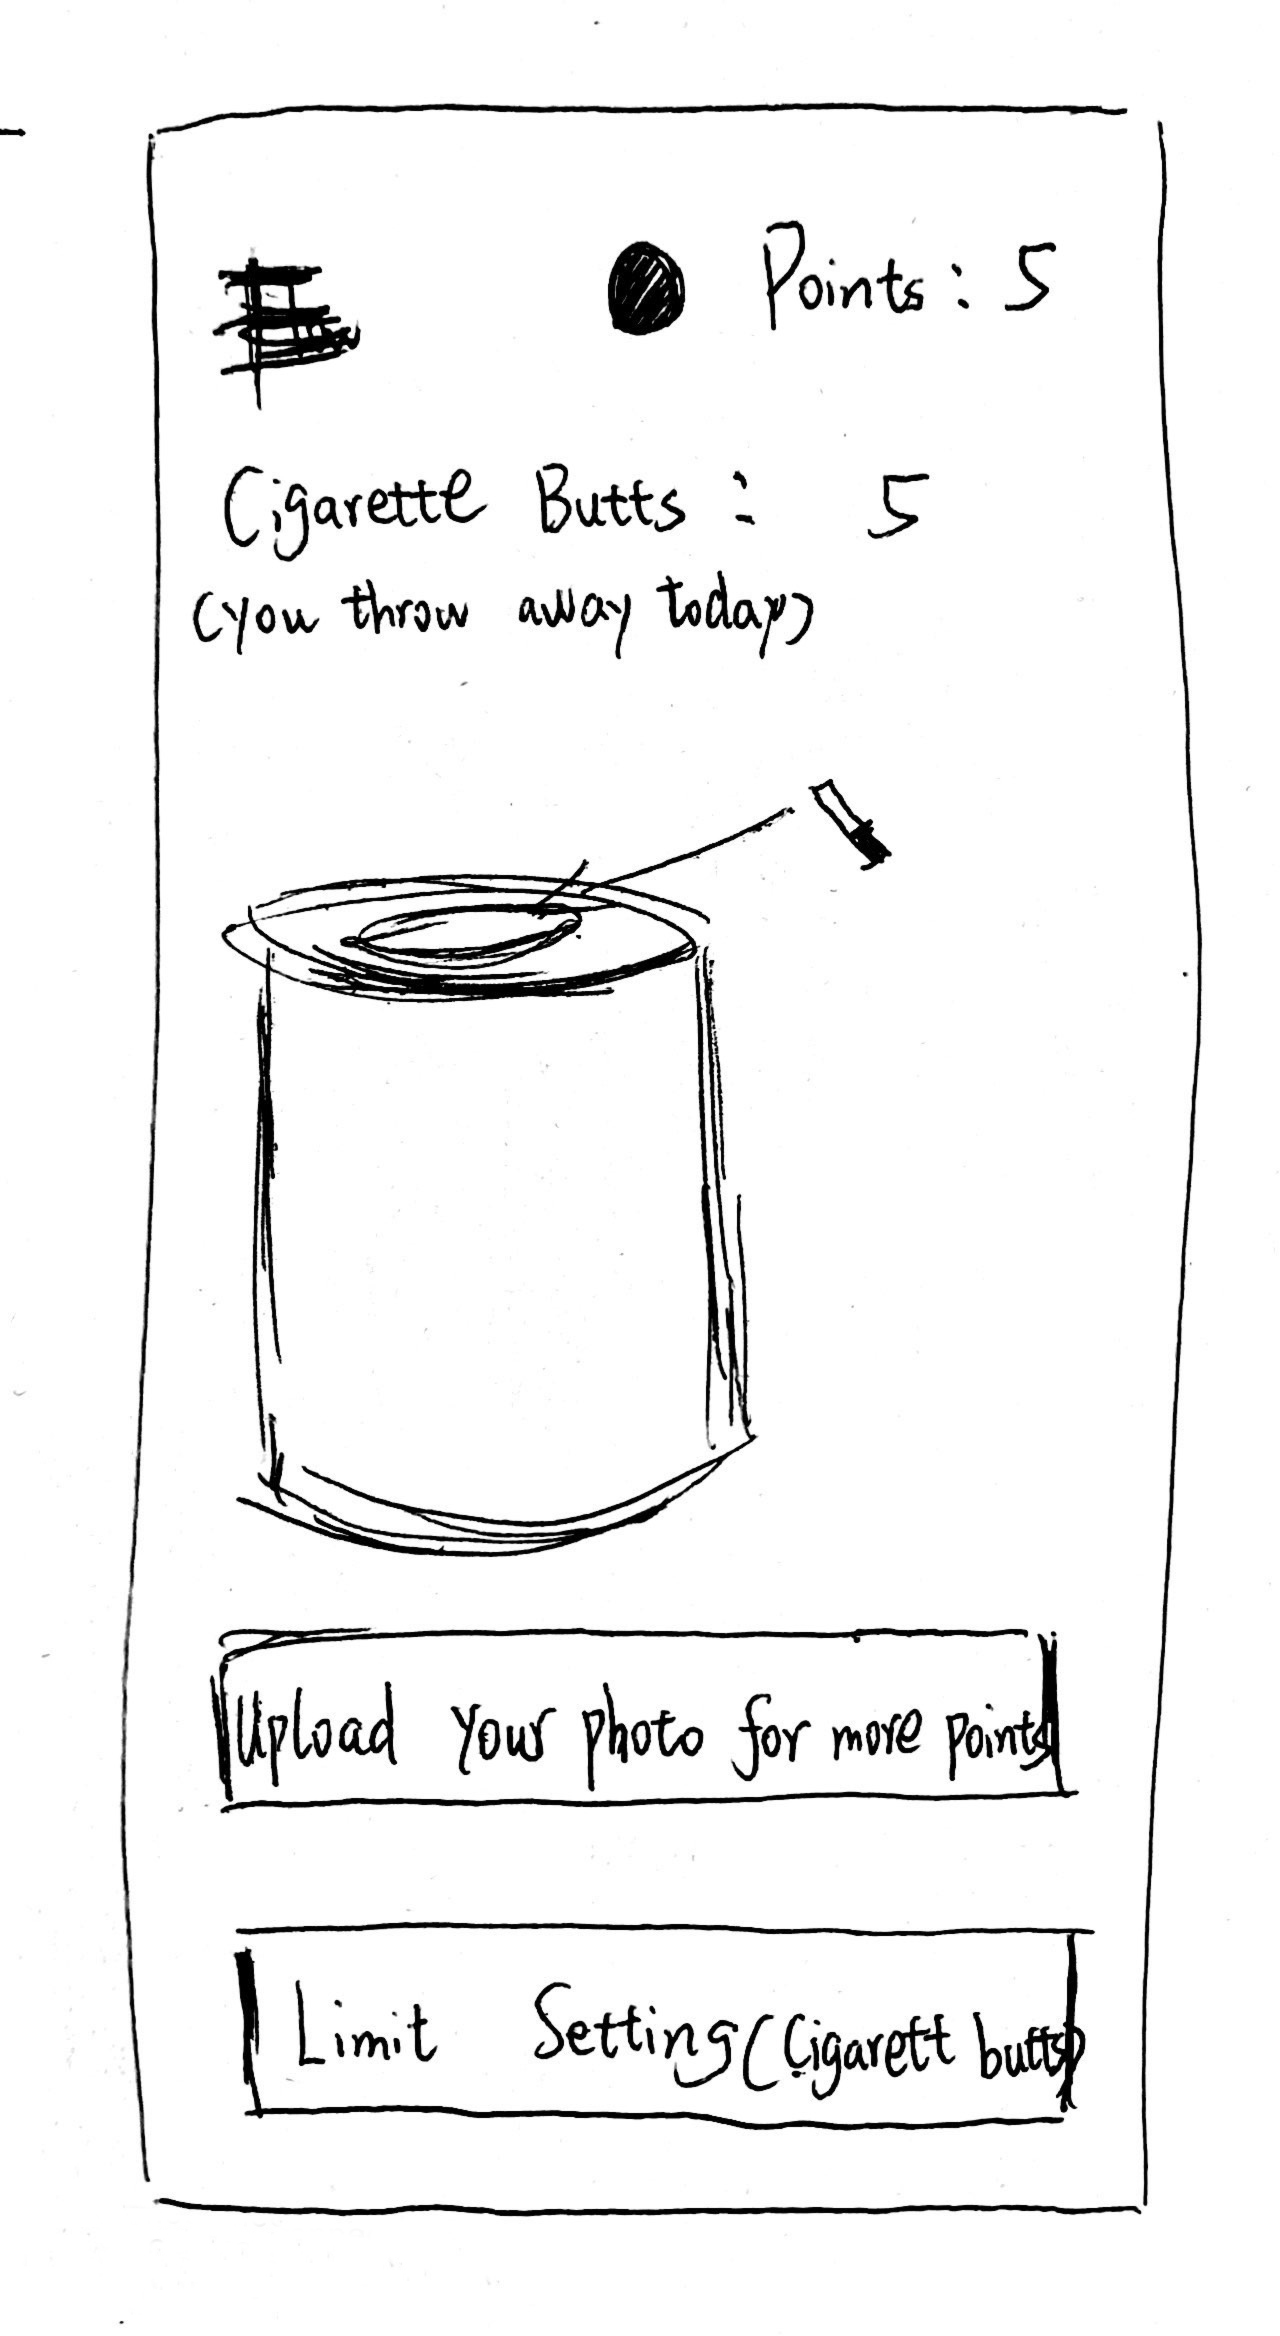 Points: 5
Cigarette Butts: 5
(you throw away today)
Upload your photo for more points
Limit Setting (Cigarett butts)